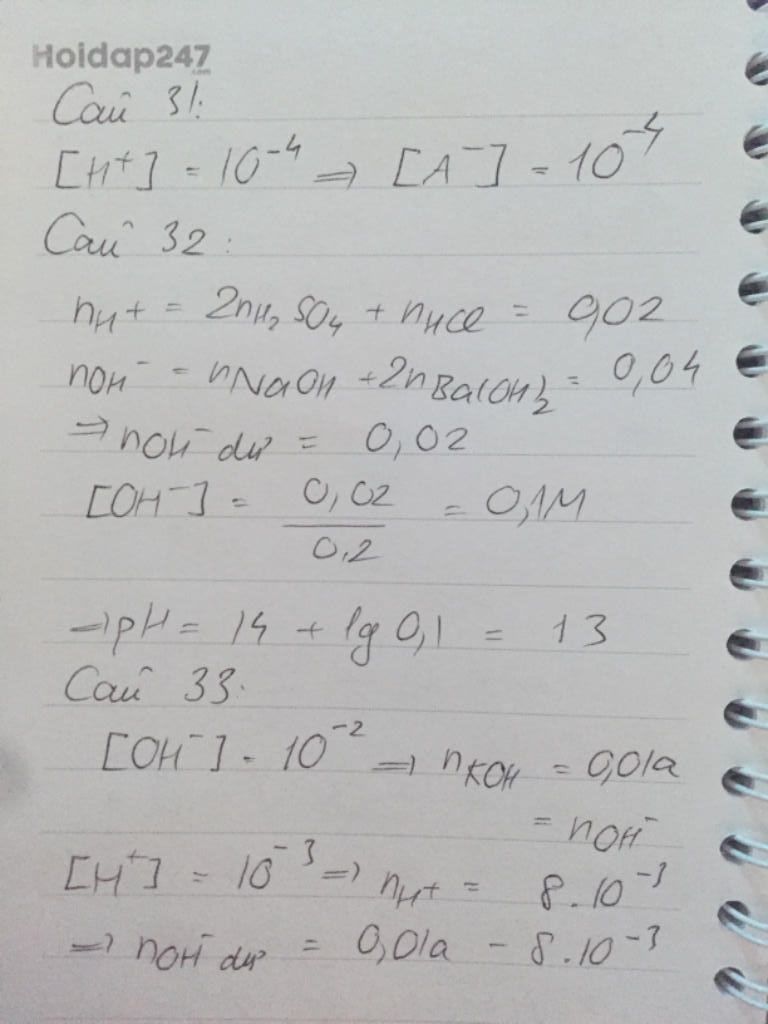 Hoidap247
.com
Câu 31:
[H⁺] = 10⁻⁴ => [A⁻] = 10⁻⁴
Câu 32:
nH⁺ = 2nH₂SO₄ + nHCl = 0,02
nOH⁻ = nNaOH + 2nBa(OH)₂ = 0,04
=> nOH⁻ dư = 0,02
[OH⁻] = 0,02/0,2 = 0,1M
=> pH = 14 + lg 0,1 = 13
Câu 33.
[OH⁻] = 10⁻² => nKOH = 0,01a
= nOH⁻
[H⁺] = 10⁻³ => nH⁺ = 8.10⁻³
=> nOH⁻ dư = 0,01a - 8.10⁻³